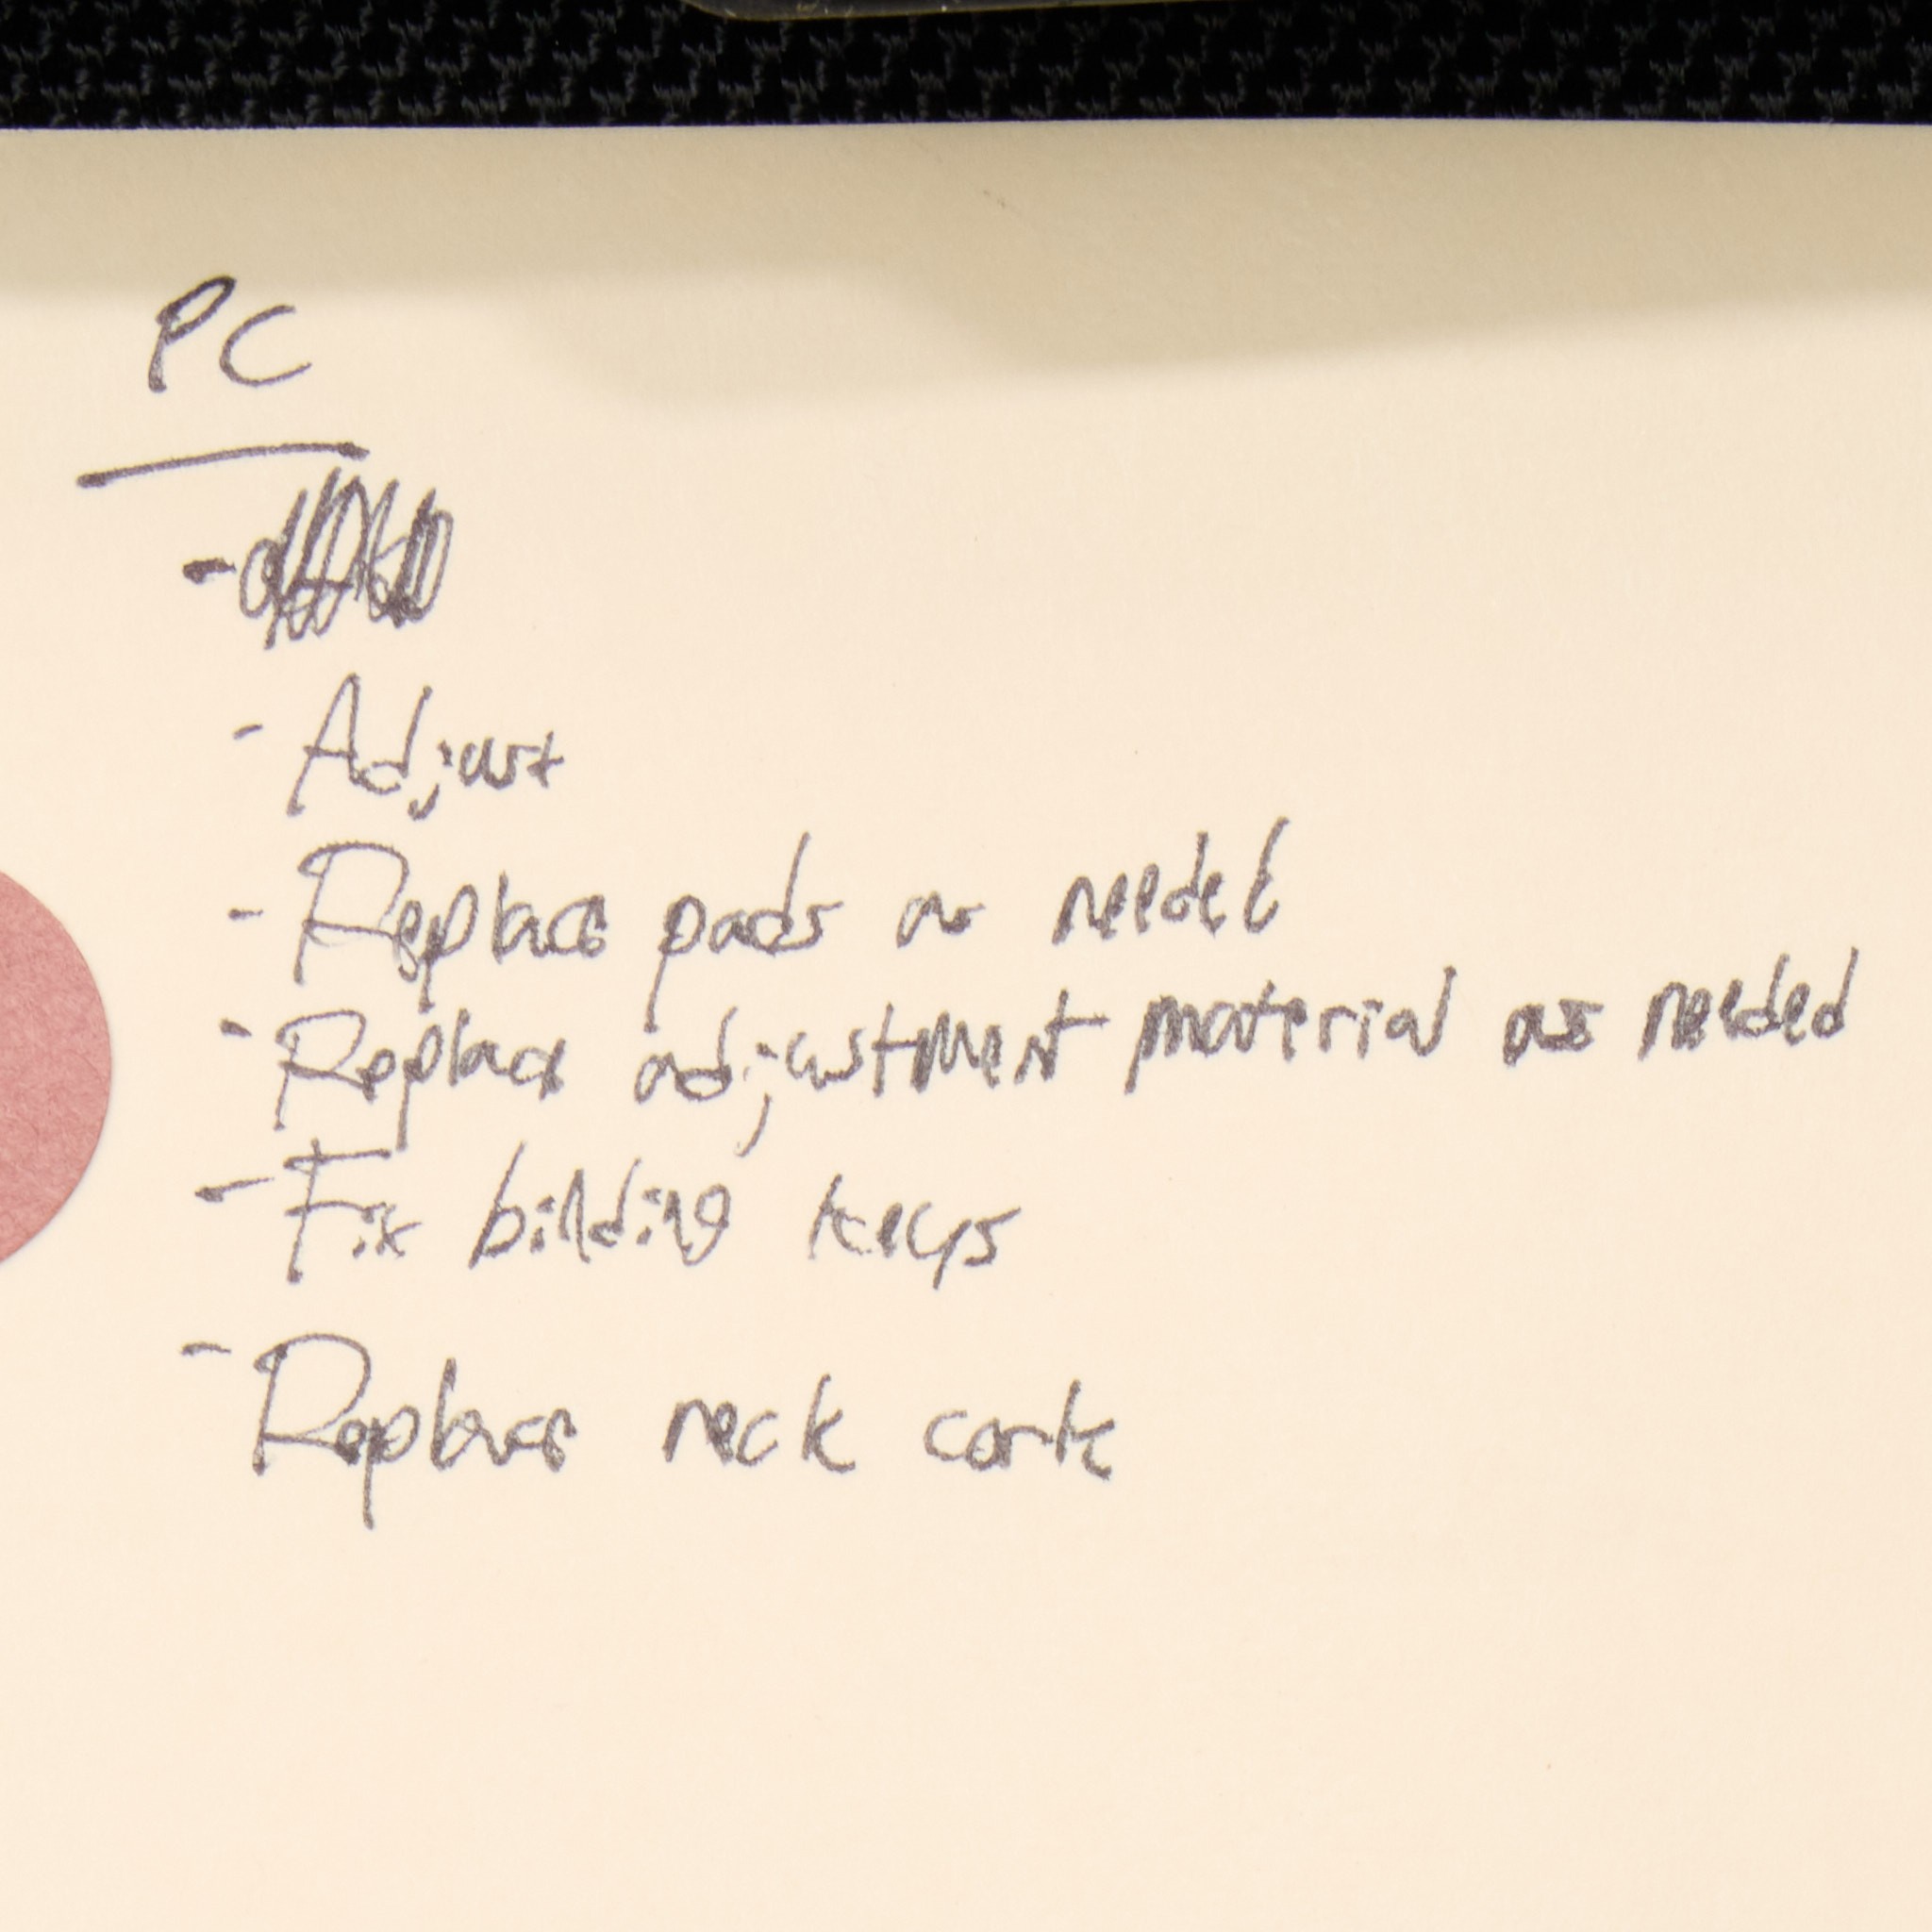 PC
- Adjust
- Replace pads as needed
- Replace adjustment material as needed
- Fix binding keys
- Replace neck cork